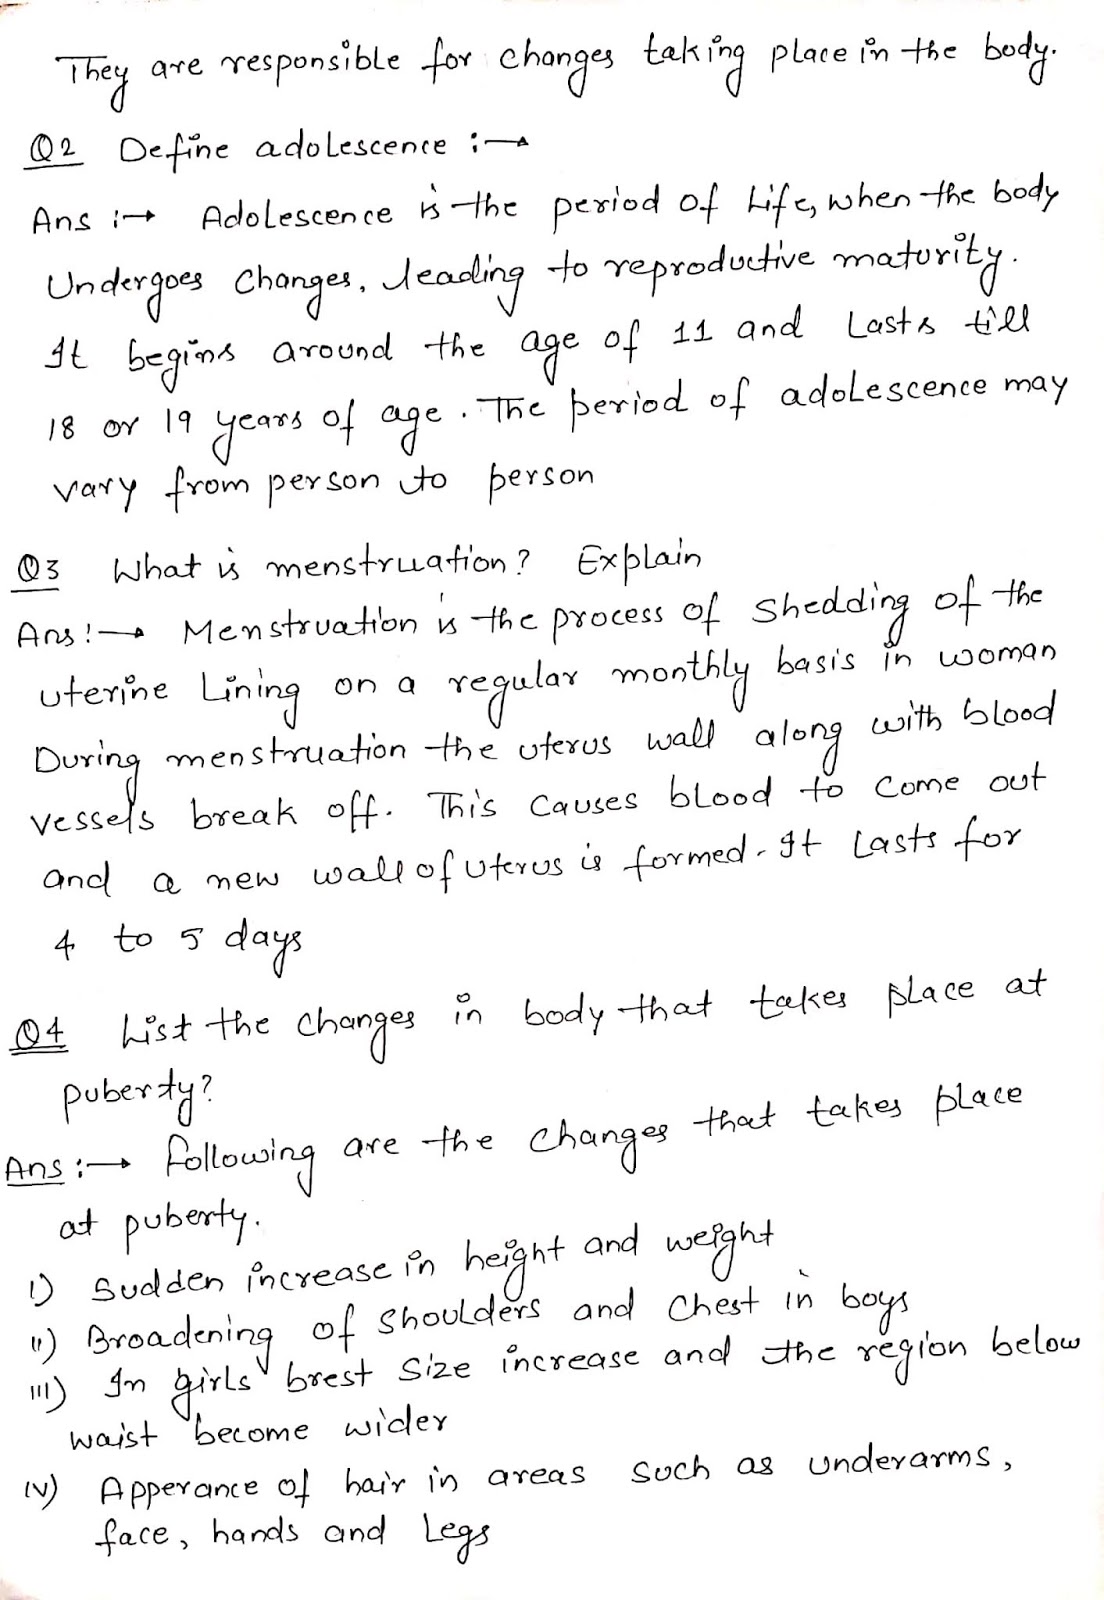 They are responsible for changes taking place in the body.
Q2 Define adolescence :→
Ans :→ Adolescence is the period of life, when the body
Undergoes changes, leading to reproductive maturity.
It begins around the age of 11 and Lasts till
18 or 19 years of age. The period of adolescence may
vary from person to person
Q3 What is menstruation? Explain
Ans :→ Menstruation is the process of shedding of the
uterine Lining on a regular monthly basis in woman
During menstruation the uterus wall along with blood
vessels break off. This causes blood to come out
and a new wall of uterus is formed. It Lasts for
4 to 5 days
Q4 List the changes in body that takes place at
puberty?
Ans :→ following are the changes that takes place
at puberty.
I) Sudden increase in height and weight
II) Broadening of shoulders and chest in boys
III) In girls' brest size increase and the region below
waist become wider
IV) Apperance of hair in areas such as underarms,
face, hands and Legs